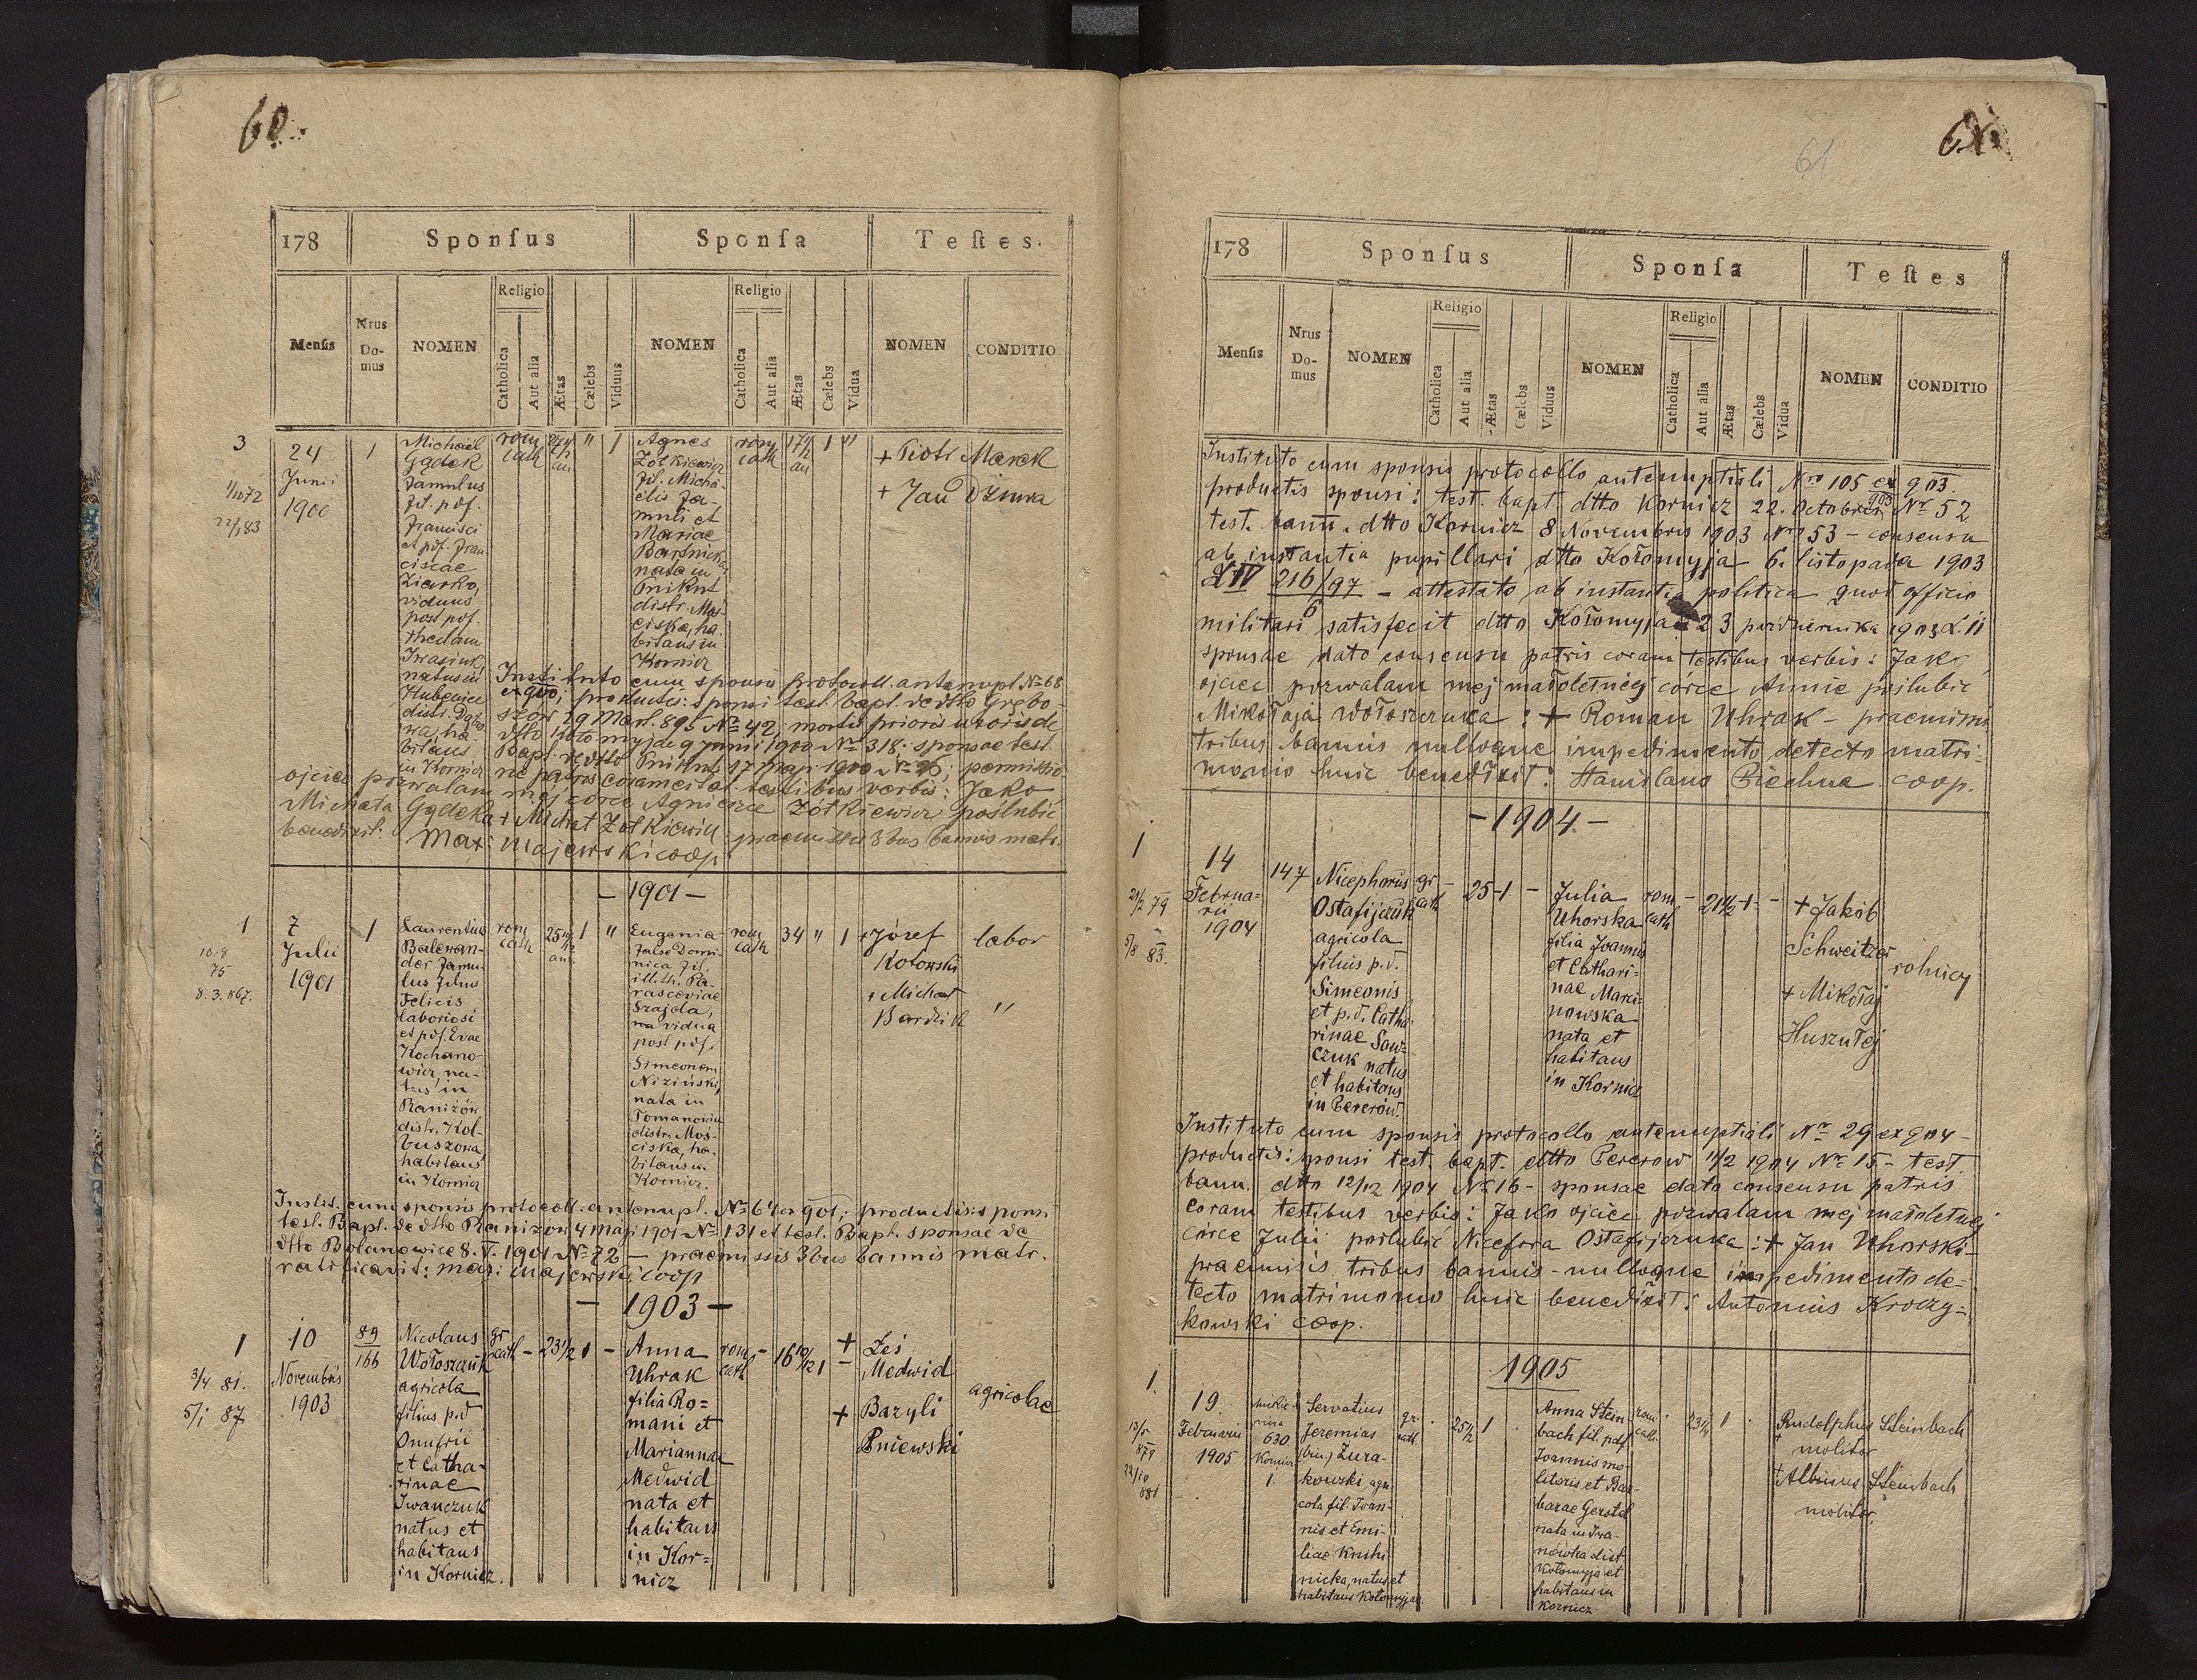 60.
178
Sponſus
Sponſa
Teſtes.
Menſis
Nrus Do-mus
NOMEN
Religio
Catholica
Aut alia
Ætas
Cælebs
Viduus
NOMEN
Religio
Catholica
Aut alia
Ætas
Cælebs
Vidua
NOMEN
CONDITIO
3
24
Junii
1900
1/10 72
22/1 83
1
Michael
Gądek
famulus
fil. pdf.
Francisci
et pdf. Fran-
ciscae
viduus
post pdf.
theclam
Iwasiuk,
natus in
Hubenice
distr. Dąbro
wa, ha
bitans
in Kornicz
rom
cath
"
1
Agnes
Żółkiewicz
fil. Micha-
elis fa-
muli et
Mariae
nata in
Pnikut
distr. Mos-
ciska, ha-
bitans in
Kornicz
rom
cath
17
1
"
+ Piotr Marek
+ Jan Dziura
Instituto cum sponsis protocoll. antenupt. № 68
ex 900; productis: sponsi test. bapt. de dtto Grębo-
szow 19 Mart. 895 № 42, mortis prioris uxoris de
dtto Kołomyja 9 Junii 1900 № 318. sponsae test.
Bapt. de dtto Pnikut 17 Maji 1900 № 96; permissio-
ne patris coram testibus verbis: Jako
ojciec pozwalam mej córce Agnieszce Żółkiewicz poślubić
Michała Gądeka + Michał Żółkiewicz praemissis 3bus bannis matr.
benedixit: Max Majewski coop
- 1901 -
1
7
Julii
1901
10.8
75
8.3.867.
1
Laurentius
Balewan-
der famu-
lus filius
Felicis
laboriosi
et pdf. Evae
Kochano-
wicz, na-
tus in
Raniżów
distr. Kol-
buszowa
habitans
in Kornicz
rom
cath
25
1
"
Eugenia
false Domi-
nica fil.
illth. Pa-
rasceviae
Szajda,
vidua
post pdf.
Simeonem
Niziński,
nata in
Tomanowice
distr. Mos-
ciska, ha-
bitans in
Kornicz.
rom
cath
34
"
1
+ Józef
Kotowski
+ Michał
Bardzik
labor
"
Instit. cum sponsis protocoll. antenupt. № 64 ex 901; productis: sponsi
test. Bapt. de dtto Raniżow 4 Maji 1901 № 131 et test. Bapt. sponsae de
dtto Bolanowice 8. V. 1901 № 72 — praemissis 3bus bannis matr.
ratificavit: Max: Majewski coop
- 1903 -
1
10
Novembris
1903
3/4 81.
5/1 87
89
166
Nicolaus
Wołoszczuk
agricola
filius p.d
Onufrii
et Catha-
rinae
Iwanczuk
natus et
habitans
in Kornicz.
gr
cath
-
23 1/2
1
-
Anna
Uhrak
filia Ro=
mani et
Mariannae
Medwid
nata et
habitans
in Kor=
nicz
rom
cath
-
16 10/12
1
-
+ Łeś
Medwid
+ Bazyli
Pniewski
agricolae
61
61
178
Sponſus
Sponſa
Teſtes
Menſis
Nrus Do-mus
NOMEN
Religio
Catholica
Aut alia
Ætas
Cælebs
Viduus
NOMEN
Religio
Catholica
Aut alia
Ætas
Cælebs
Vidua
NOMEN
CONDITIO
Instituto cum sponsis protocollo antenuptiali Nro 105 ex 903
productis sponsi: test. bapt. dtto Kornicz 22. Octobris 903 № 52
test. bann. dtto Kornicz 8 Novembris 1903 Nro 53 - consensu
ab instantia pupillari dtto Kołomyja 6. listopada 1903
L IV 216/97 - attestato ab instantia politica quod officio
6
militari satisfecit dtto Kołomyja 23 października 1903 L. 11
sponsae dato consensu patris coram testibus verbis: Jako
ojciec pozwalam mej małoletniej córce Annie poślubić
Mikołaja Wołoszczuka: + Roman Uhrak - praemissis
tribus bannis nulloque impedimento detecto matri-
monio huic benedixit: Stanislaus Piechna coop.
- 1904. -
1
14
Februa=
rii
1904
21/2 79
5/8 83.
147
Nicephorus
Ostafijczuk
agricola
filius p.d.
Simeonis
et p.d. Catha-
rinae Saw-
czuk natus
et habitans
in Pererów.
gr
cath
-
25
1
-
Julia
Uhorska
filia Joannis
et Cathari-
nae Marci-
nowska
nata et
habitans
in Kornicz
rom
cath
-
21 1/2
1
-
+ Jakób
Schweitzer
+ Mikołaj
Huszułej
rolnicy
Instituto cum sponsis protocollo antenuptiali № 29 ex 904 -
productis: sponsi test. bapt. dtto Pererow 11/2 1904 № 15 - test.
bann. dtto 12/12 1904 № 16 - sponsae dato consensu patris
coram testibus verbis: Jako ojciec pozwalam mej małoletniej
córce Julii poślubić Nicefora Ostafijczuka: + Jan Uhorski -
praemissis tribus bannis - nulloque impedimento de=
tecto matrimonio huic benedixit: Antonius Kroczy=
kowski coop.
1905
1.
19.
Februarii
1905
13/5
879
22/10
881
630
Kornicz
1.
Servatius
Jeremias
(bin.) Żura-
kowski agri-
cola fil. Ioan-
nis et Emi-
liae Knihi-
nicka, natus et
habitans Kołomyjae
gr.
cath.
25 1/2
1
Anna Stein-
bach fil. pdf.
Joannis mo-
litoris et Bar-
barae Gerstel
nata in Iwa-
nówka dist.
Kołomyja et
habitans in
Kornicz
rom.
cath.
23 1/4
1
Rudolphus Steinbach
molitor
+ Albinus Steinbach
molitor.